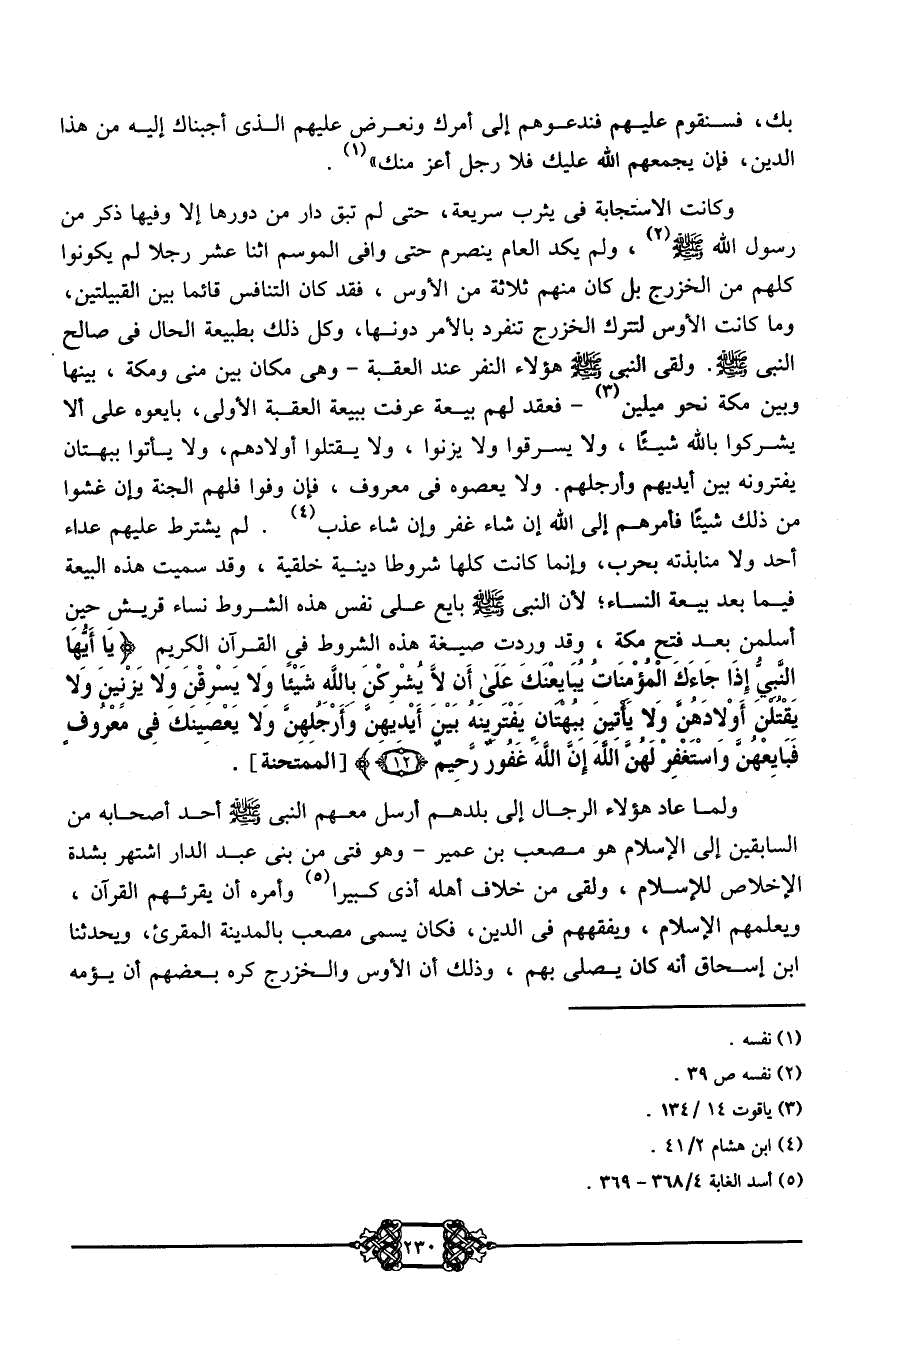 بك، فسنقوم عليهم فندعوهم إلى أمرك ونعرض عليهم الذى أجبناك إليه من هذا
الدين، فإن يجمعهم الله عليك فلا رجل أعز منك»(١) .
وكانت الاستجابة فى يثرب سريعة، حتى لم تبق دار من دورها إلا وفيها ذكر من
رسول الله ﷺ(٢) ، ولم يكد العام ينصرم حتى وافى الموسم اثنا عشر رجلا لم يكونوا
كلهم من الخزرج بل كان منهم ثلاثة من الأوس ، فقد كان التنافس قائما بين القبيلتين،
وما كانت الأوس لتترك الخزرج تنفرد بالأمر دونها، وكل ذلك بطبيعة الحال فى صالح
النبى ﷺ. ولقى النبى ﷺ هؤلاء النفر عند العقبة - وهى مكان بين منى ومكة ، بينها
وبين مكة نحو ميلين(٣) - فعقد لهم بيعة عرفت ببيعة العقبة الأولى، بايعوه على ألا
يشركوا بالله شيئًا ، ولا يسرقوا ولا يزنوا ، ولا يقتلوا أولادهم، ولا يأتوا ببهتان
يفترونه بين أيديهم وأرجلهم. ولا يعصوه فى معروف ، فإن وفوا فلهم الجنة وإن غشوا
من ذلك شيئًا فأمرهم إلى الله إن شاء غفر وإن شاء عذب(٤) . لم يشترط عليهم عداء
أحد ولا منابذته بحرب، وإنما كانت كلها شروطا دينية خلقية ، وقد سميت هذه البيعة
فيما بعد بيعة النساء؛ لأن النبى ﷺ بايع على نفس هذه الشروط نساء قريش حين
أسلمن بعد فتح مكة ، وقد وردت صيغة هذه الشروط في القرآن الكريم ﴿يَا أَيُّهَا
النَّبِيُّ إِذَا جَاءَكَ الْمُؤْمِنَاتُ يُبَايِعْنَكَ عَلَىٰ أَن لاَّ يُشْرِكْنَ بِاللَّهِ شَيْئًا وَلا يَسْرِقْنَ وَلا يَزْنِينَ وَلا
يَقْتُلْنَ أَوْلادَهُنَّ وَلا يَأْتِينَ بِبُهْتَانٍ يَفْتَرِينَهُ بَيْنَ أَيْدِيهِنَّ وَأَرْجُلِهِنَّ وَلا يَعْصِينَكَ فِي مَعْرُوفٍ
فَبَايِعْهُنَّ وَاسْتَغْفِرْ لَهُنَّ اللَّهَ إِنَّ اللَّهَ غَفُورٌ رَّحِيمٌ ﴿١٢﴾﴾ [الممتحنة] .
ولما عاد هؤلاء الرجال إلى بلدهم أرسل معهم النبى ﷺ أحد أصحابه من
السابقين إلى الإسلام هو مصعب بن عمير - وهو فتى من بنى عبد الدار اشتهر بشدة
الإخلاص للإسلام ، ولقى من خلاف أهله أذى كبيرا(٥) وأمره أن يقرئهم القرآن ،
ويعلمهم الإسلام ، ويفقههم فى الدين، فكان يسمى مصعب بالمدينة المقرئ، ويحدثنا
ابن إسحاق أنه كان يصلى بهم ، وذلك أن الأوس والخزرج كره بعضهم أن يؤمه
(١) نفسه .
(٢) نفسه ص ٣٩ .
(٣) ياقوت ١٤ /١٣٤ .
(٤) ابن هشام ٤١/٢ .
(٥) أسد الغابة ٣٦٨/٤ - ٣٦٩ .
٢٣٠